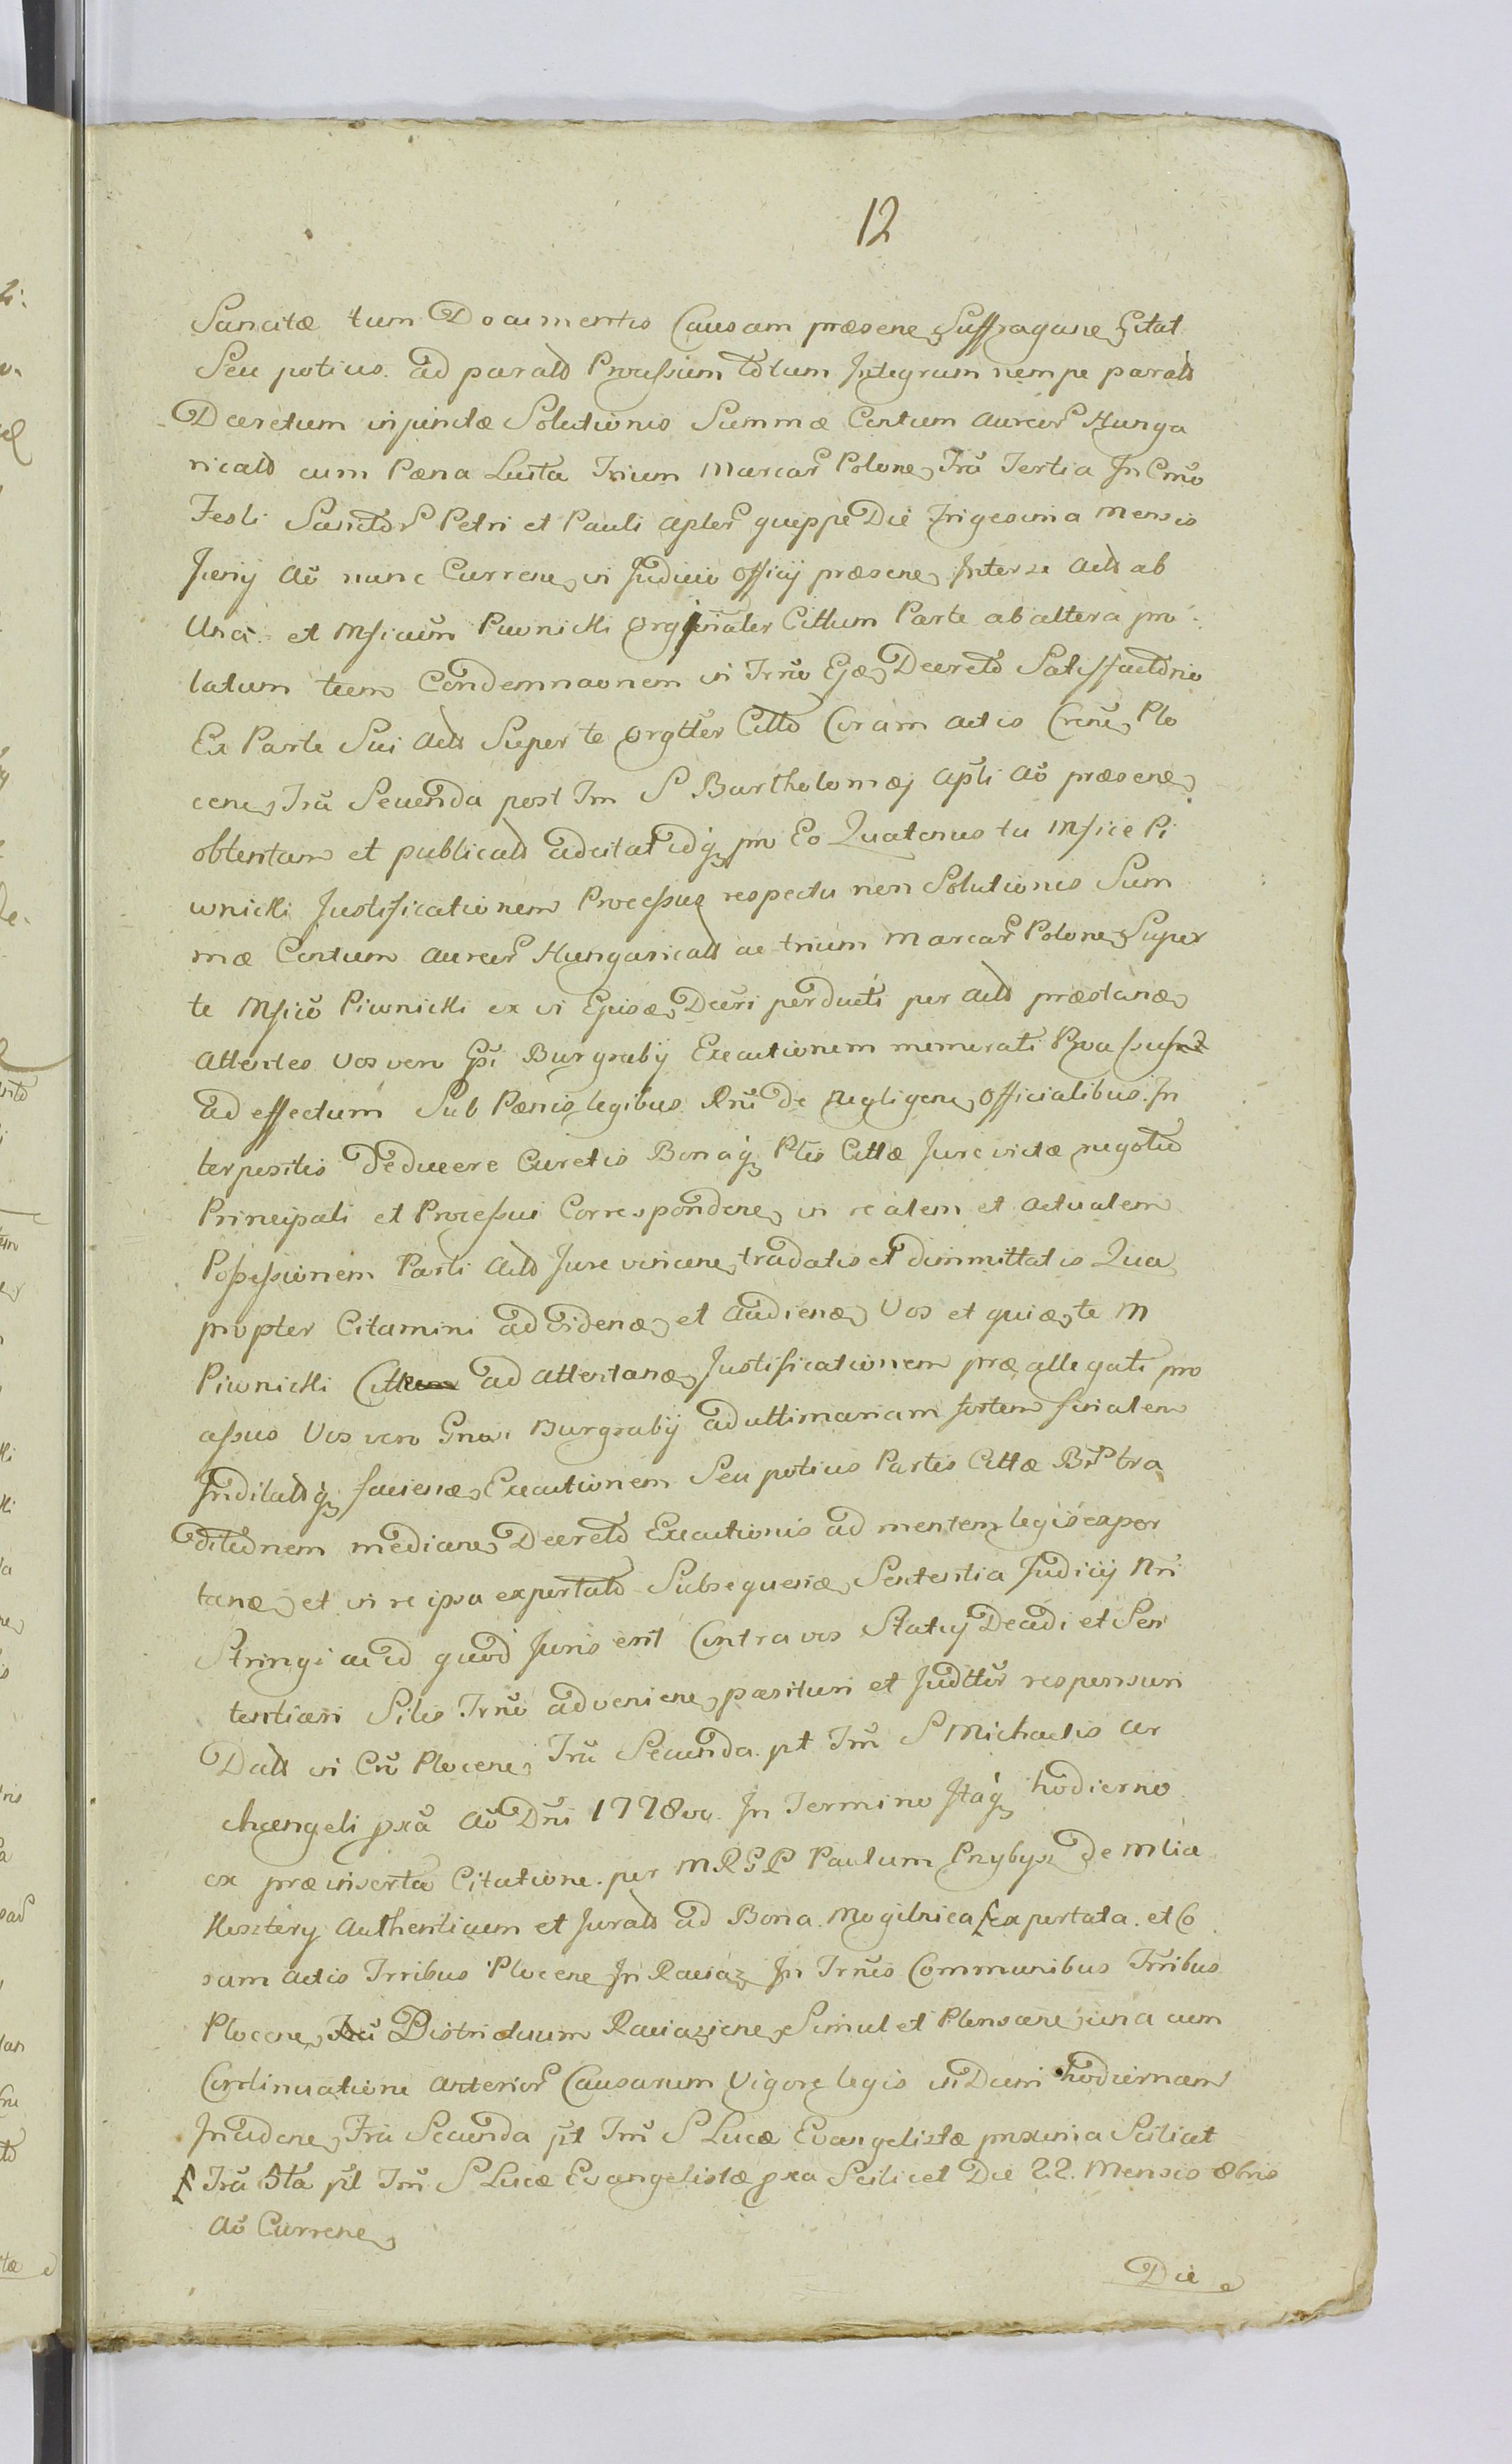 12
Sancitæ tum Documentis Causam præsene Suffragane Citat
Seu potius ad parato Processum totum Integrum nempe parato
Decretum injunctæ Solutionis Summæ Centum aureor Hunga
ricato cum Pæna Luita Trium Marcar Polone, Fra Tertia In Crno
Festi Sanctor Petri et Pauli aplor queppe Die Trigesima Mensis
Junij Ao nunc Currene, in Judicio Officij præsene, Inter se Acto ab
Una et Mficum Piwnicki Orginaliter Cittum Parte ab altera pro
latum tum Condemnaonem in Trno Ejæ, Decreto Satisfactorio
Ex Parte Sui Acto Super te Orgtter Citto Coram actis Crene, Plo
cene, Fra Secunda post Im S Bartholomæj Apli Ao præsene,
obtentam et publicato adcitat idq pro Eo Quatenus tu Mfice Pi
wnicki Justificationem Processus respectu non Solutionis Sum
mæ Centum aureor Hungaricato ac trium Marcar Polone, Super
te Mfico Piwnicki ex vi Ejusæ, Decri perducti per Acto præstanæ,
Attentes vos vero Gsi Burgrabij Executionem memorati
ad effectum Sub Pænis legibus Rni de negligene, Officialibus In
terpositis deducere Curetis Bonaq Ptis Cittæ Jure victæ negotio
Principali et Processui Correspondene, in realem et actualem
Possessionem Parti Acto Jure vincene, tradatis et dimmittatis Qua
propter Citamini ad videnæ, et audienæ, Vos et quiæ, te M
Piwnicki ad attentanæ, Justificationem præallegati pro
cessus Vos vero Gnosi Burgrabij ad ultimariam fortem finalem
Inditatoq facienæ, Executionem Seu potius Partis Cittæ Br tra
ditionem mediane, Decreto Executionis ad mentem legis expor
tanæ, et in re ipsa exportato Subsequenæ, Sententia Judicij Nri
Stringi ac id quod Juris erit Contra vos Statuj Decidi et Sen
tentiari Silis Trno advenienæ, parituri et Judtter responsuri
Dato in Cro Plocene, Fra Secunda pt Im S Michaelis Ar
changeli pxa Ao Dni 1778vo. In Termino Itaq hodierno
ex præinserta Citatione per MRGP Paulum Przybysz de Mlia
Klesztery Authenticum et Jurato ad Bona Mogilnica Exportata et Co
ram actis Trribus Plocene In Raciaz In Trnis Communibus Trribus
Plocene, Districtuum Raciazgene, Simul et Plonscene, una cum
Continuatione anterior Causarum Vigore legis in Diem hodiernam
Incidene, Fra Secunda pt Im S Lucæ Evangelistæ proxima Scilicet
Fra 5ta pt Im S Lucæ Evangelistæ pxa Scilicet Die 22. Mensis 8bris
Ao Currene,
Die